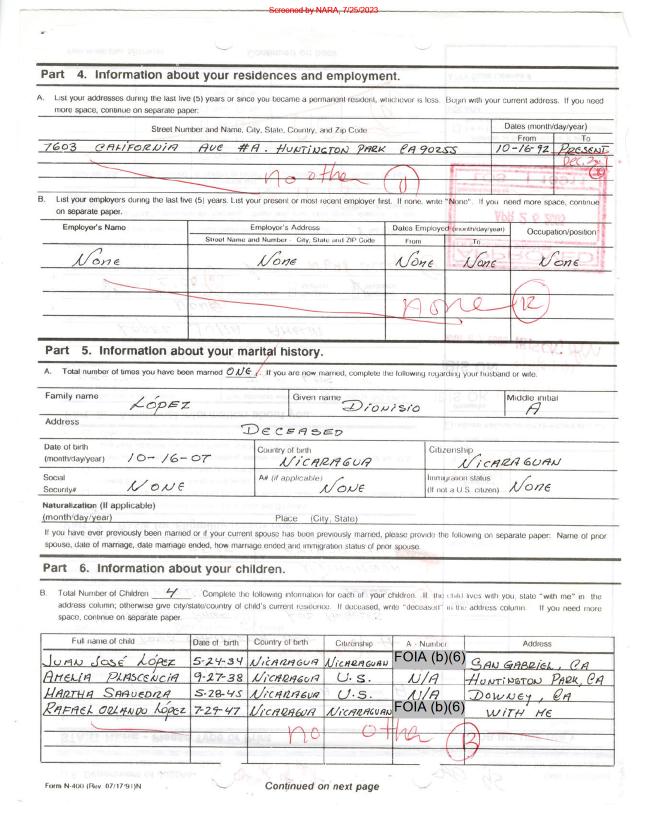 Screened by NARA, 7/25/2023
Part 4. Information about your residences and employment.
A. List your addresses during the last five (5) years or since you became a permanent resident, whichever is less. Begin with your current address. If you need
more space, continue on separate paper:
Street Number and Name, City, State, Country, and Zip Code Dates (month/day/year)
From To
7603 CALIFORNIA AVE #A. HUNTINGTON PARK CA 90255 10-16-92 PRESENT
no other 11
B. List your employers during the last five (5) years. List your present or most recent employer first. If none, write "None". If you need more space, continue
on separate paper.
Employer's Name Employer's Address Dates Employed (month/day/year) Occupation/position
Street Name and Number - City, State and ZIP Code From To
NONE NONE NONE NONE NONE
none 12
Part 5. Information about your marital history.
A. Total number of times you have been married ONE. If you are now married, complete the following regarding your husband or wife.
Family name LÓPEZ Given name DIONISIO Middle initial A
Address DECEASED
Date of birth (month/day/year) 10-16-07 Country of birth NICARAGUA Citizenship NICARAGUAN
Social Security# NONE A# (if applicable) NONE Immigration status (If not a U.S. citizen) NONE
Naturalization (If applicable)
(month/day/year) Place (City, State)
If you have ever previously been married or if your current spouse has been previously married, please provide the following on separate paper: Name of prior
spouse, date of marriage, date marriage ended, how marriage ended and immigration status of prior spouse.
Part 6. Information about your children.
B. Total Number of Children 4. Complete the following information for each of your children. If the child lives with you, state "with me" in the
address column; otherwise give city/state/country of child's current residence. If deceased, write "deceased" in the address column. If you need more
space, continue on separate paper.
Full name of child Date of birth Country of birth Citizenship A - Number Address
JUAN JOSÉ LÓPEZ 5-24-34 NICARAGUA NICARAGUAN FOIA (b)(6) SAN GABRIEL, CA
AMELIA PLASCENCIA 9-27-38 NICARAGUA U.S. N/A HUNTINGTON PARK, CA
MARTHA SAAVEDRA 5-28-45 NICARAGUA U.S. N/A DOWNEY, CA
RAFAEL ORLANDO LÓPEZ 7-29-47 NICARAGUA NICARAGUAN FOIA (b)(6) WITH ME
no other 13
Form N-400 (Rev. 07/17/91)N Continued on next page